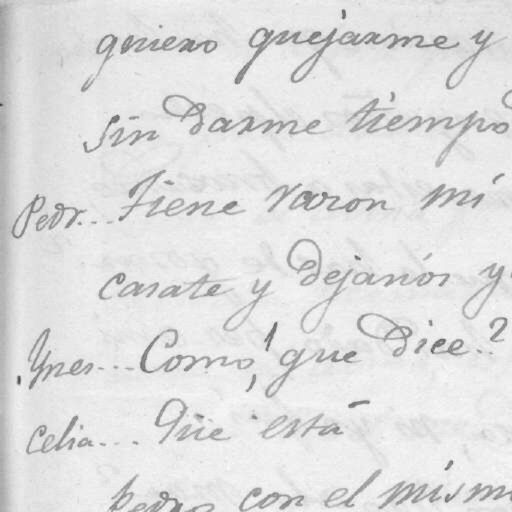 quiero quejarme y
sin darme tiempo
Pedr... Tiene razon mi
casate y dejanós y
Ynes... Como! que dice..?
Celia... Que está
Pedro con el mism